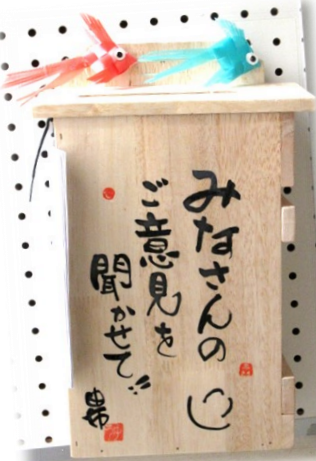 みなさんの
ご意見を
聞かせて!!